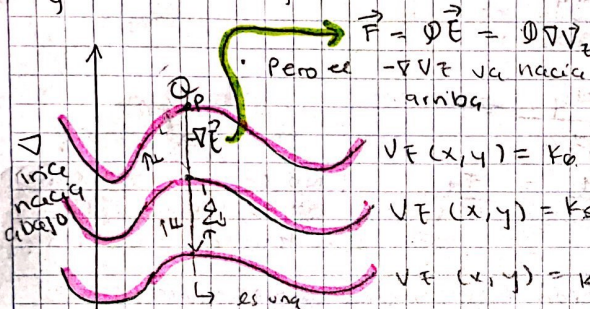 F = QE = Q∇V_E
Pero el
-∇V_E va hacia
arriba
Q
P
-∇E
∇
iría
hacia
abajo
F
F
V_E (x,y) = K_6
V_E (x,y) = K_5
V_E (x,y) = K
↳ es una